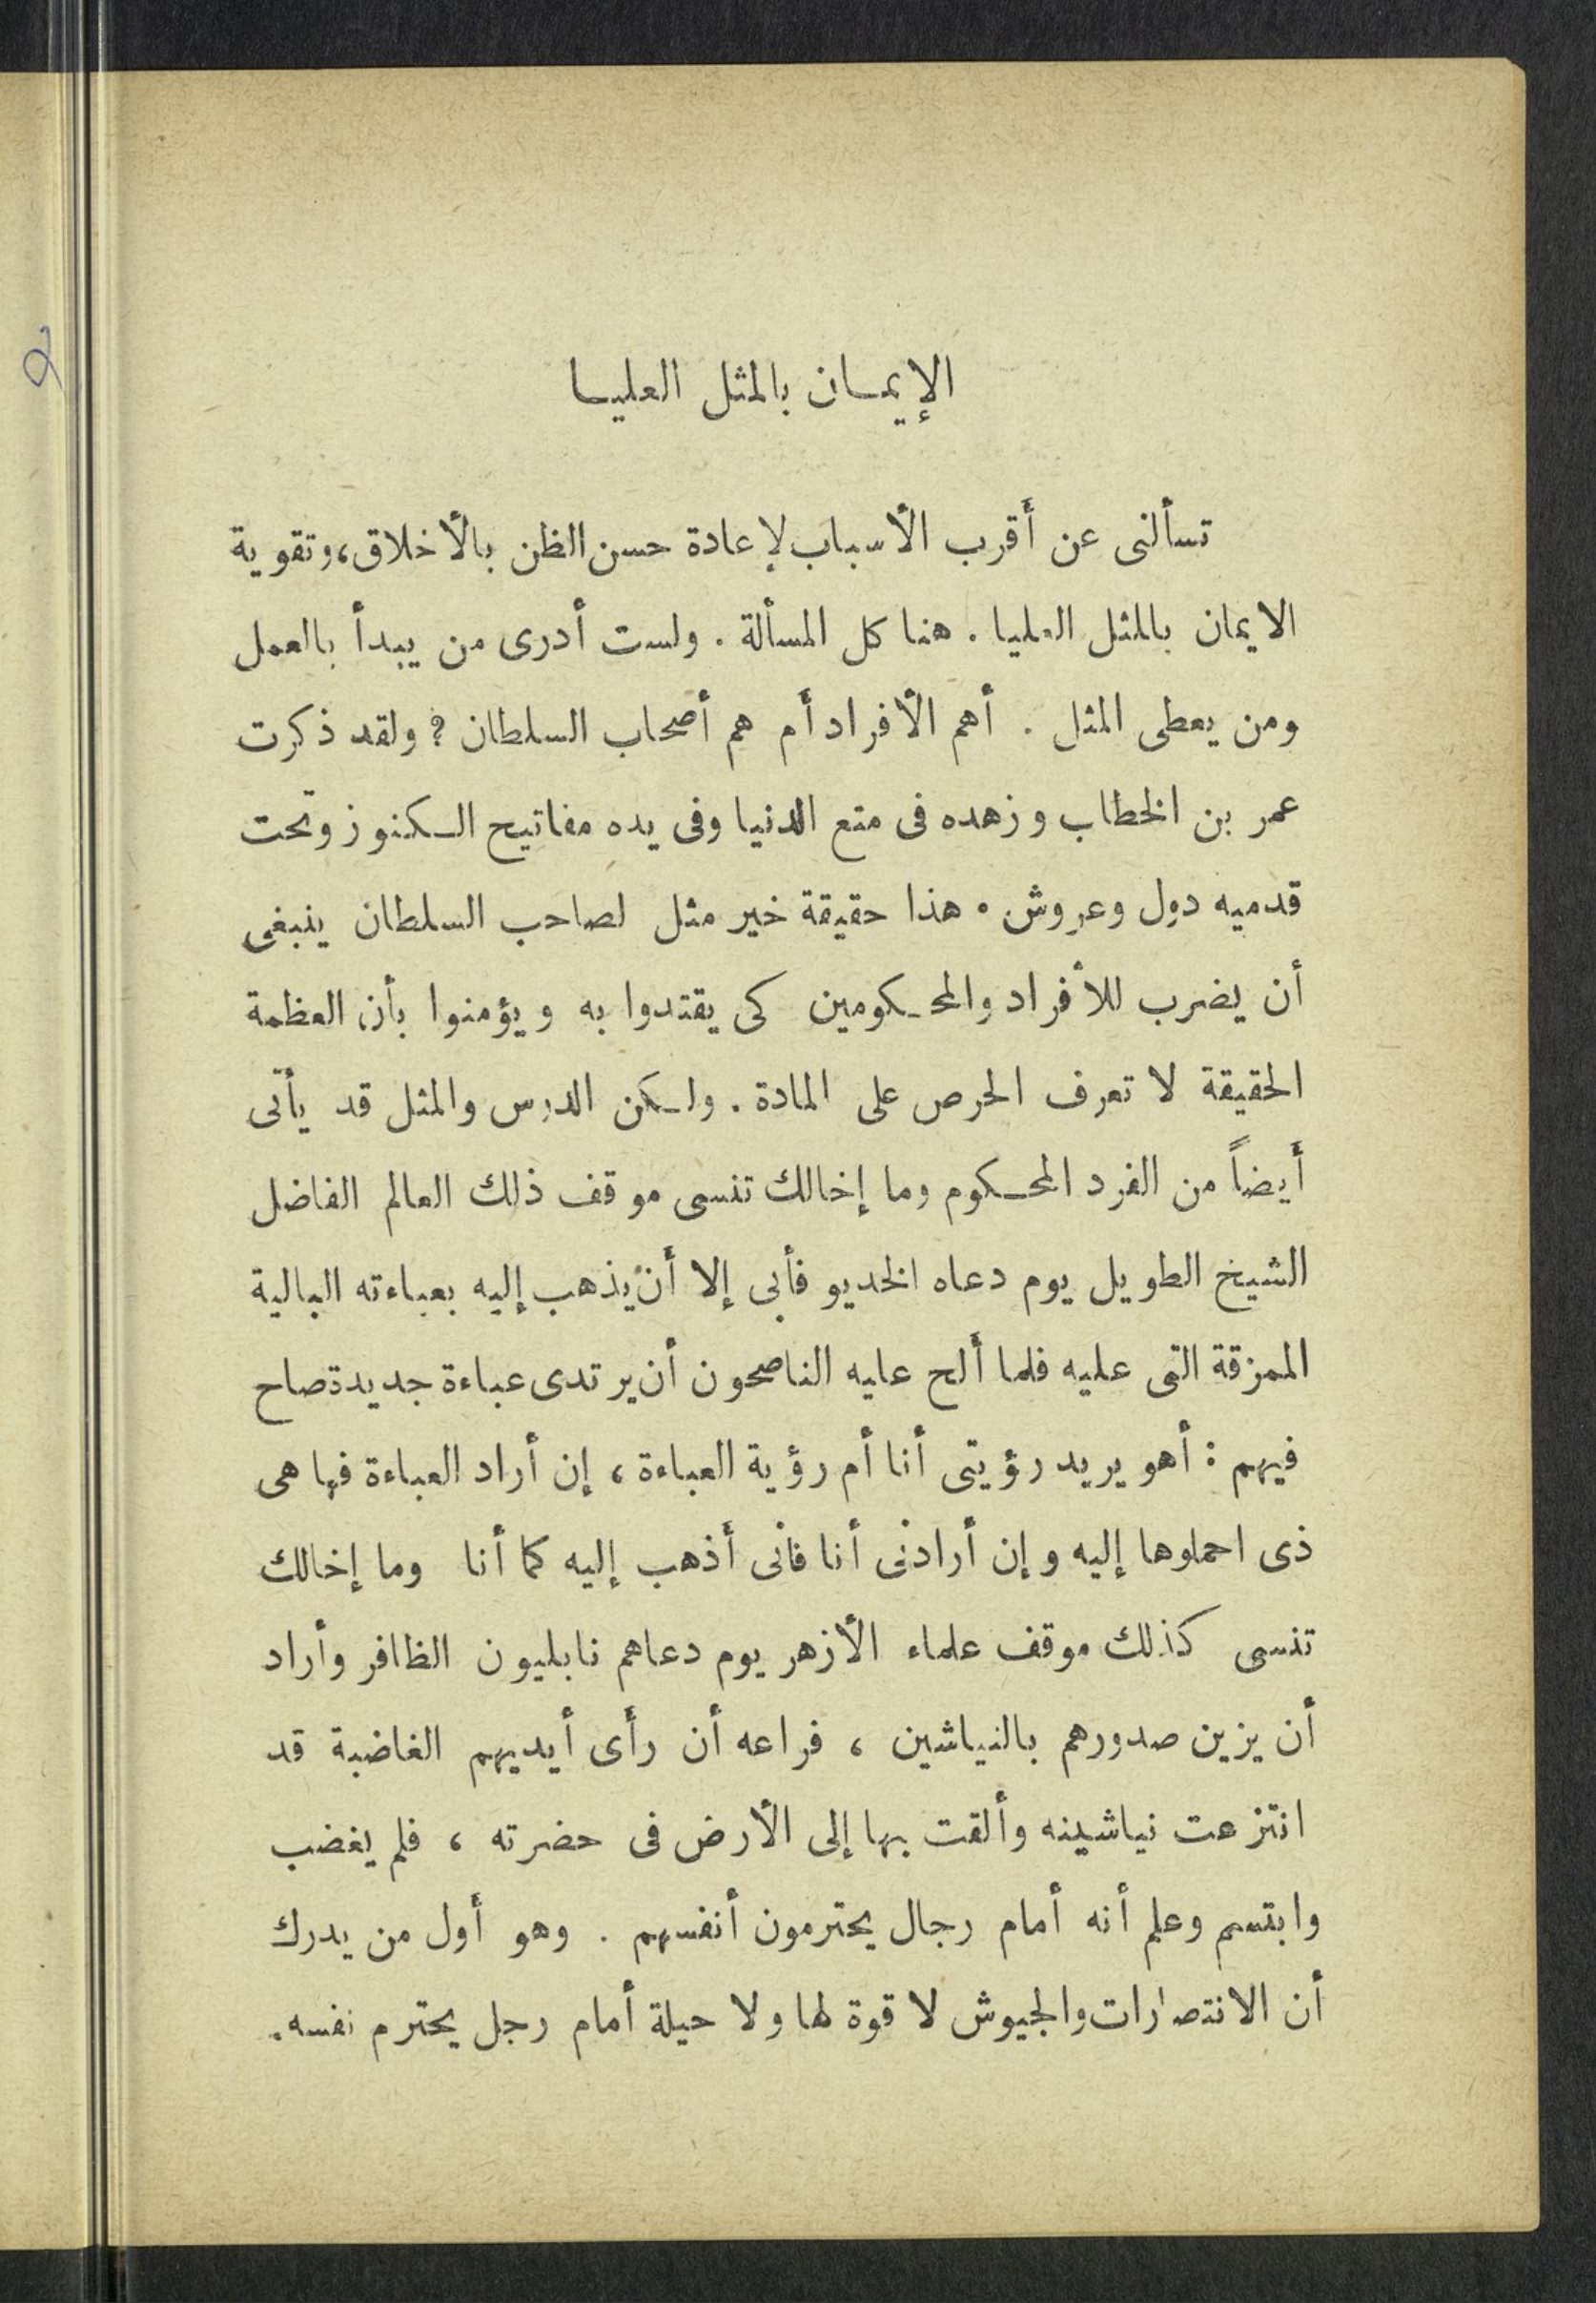 الإيمان بالمثل العليا
تسألنى عن أقرب الأسباب لإعادة حسن الظن بالأخلاق، وتقوية
الايمان بالمثل العليا . هنا كل المسألة . ولست أدرى من يبدأ بالعمل
ومن يعطى المثل . أهم الأفراد أم هم أصحاب السلطان ؟ ولقد ذكرت
عمر بن الخطاب وزهده فى متع الدنيا وفى يده مفاتيح الكنوز وتحت
قدميه دول وعروش . هذا حقيقة خير مثل لصاحب السلطان ينبغى
أن يضرب للأفراد والمحكومين كى يقتدوا به ويؤمنوا بأن العظمة
الحقيقة لا تعرف الحرص على المادة . ولكن الدرس والمثل قد يأتى
أيضاً من الفرد المحكوم وما إخالك تنسى موقف ذلك العالم الفاضل
الشيخ الطويل يوم دعاه الخديو فأبى إلا أن يذهب إليه بعباءته البالية
الممزقة التى عليه فلما ألح عليه الناصحون أن يرتدى عباءة جديدة صاح
فيهم : أهو يريد رؤيتى أنا أم رؤية العباءة ، إن أراد العباءة فها هى
ذى احملوها إليه وإن أرادنى أنا فأنى أذهب إليه كما أنا وما إخالك
تنسى كذلك موقف علماء الأزهر يوم دعاهم نابليون الظافر وأراد
أن يزين صدورهم بالنياشين ، فراعه أن رأى أيديهم الغاضبة قد
انتزعت نياشينه وألقت بها إلى الأرض فى حضرته ، فلم يغضب
وابتسم وعلم أنه أمام رجال يحترمون أنفسهم . وهو أول من يدرك
أن الانتصارات والجيوش لا قوة لها ولا حيلة أمام رجل يحترم نفسه .